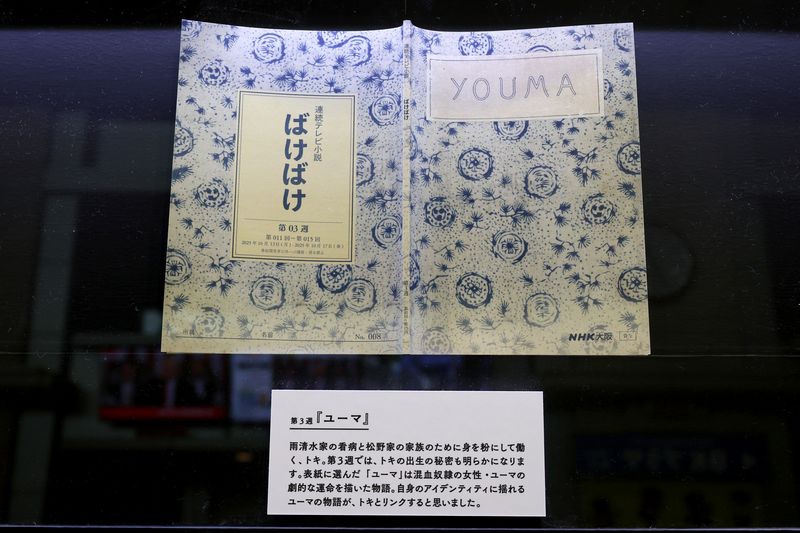 連続テレビ小説
ばけばけ
第03週
第011回ー第015回
2025年10月13日(月)-2025年10月17日(金)
所属
名前
No. 008
連続テレビ小説
ばけばけ
YOUMA
NHK大阪
第3週『ユーマ』
雨清水家の看病と松野家の家族のために身を粉にして働
く、トキ。第3週では、トキの出生の秘密も明らかになりま
す。表紙に選んだ「ユーマ」は混血奴隷の女性・ユーマの
劇的な運命を描いた物語。自身のアイデンティティに揺れる
ユーマの物語が、トキとリンクすると思いました。